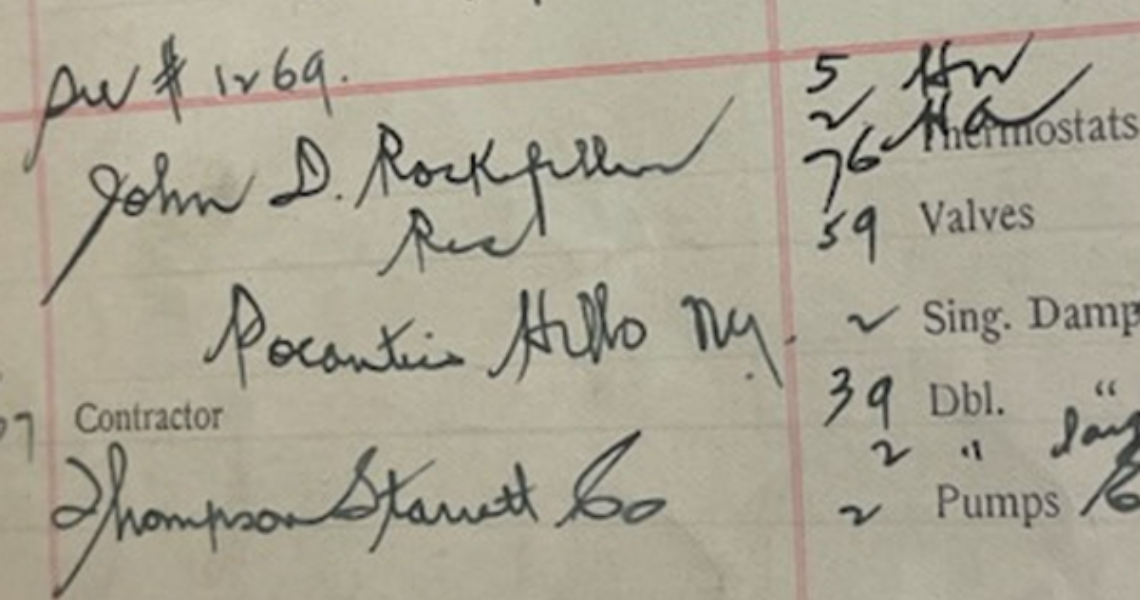 See # 1269.
John D. Rockfeller
Res
Pocantico Hills Ny.
Contractor
Thompson Starrett Co
5 HW
2 HA
76 Thermostats
59 Valves
2 Sing. Damp
39 Dbl. "
2 "
2 Pumps